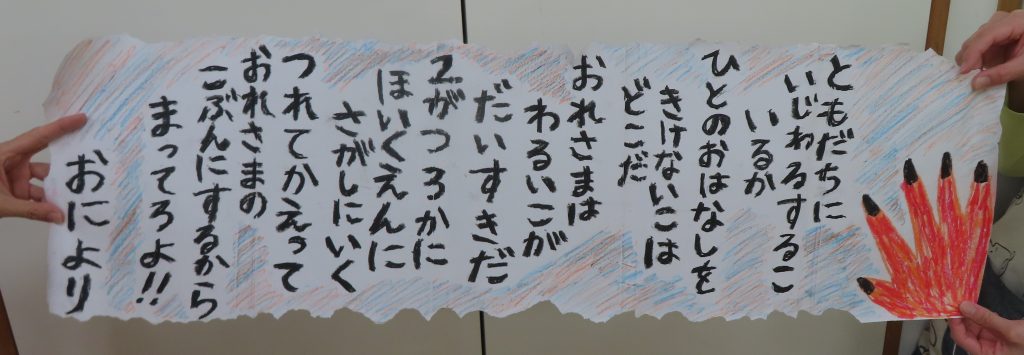 ともだちに
いじわるするこ
いるか
ひとのおはなしを
きけないこは
どこだ
おれさまは
わるいこが
だいすきだ
2がつ3かに
ほいくえんに
さがしにいく
つれてかえって
おれさまの
こぶんにするから
まってろよ!!
おにより